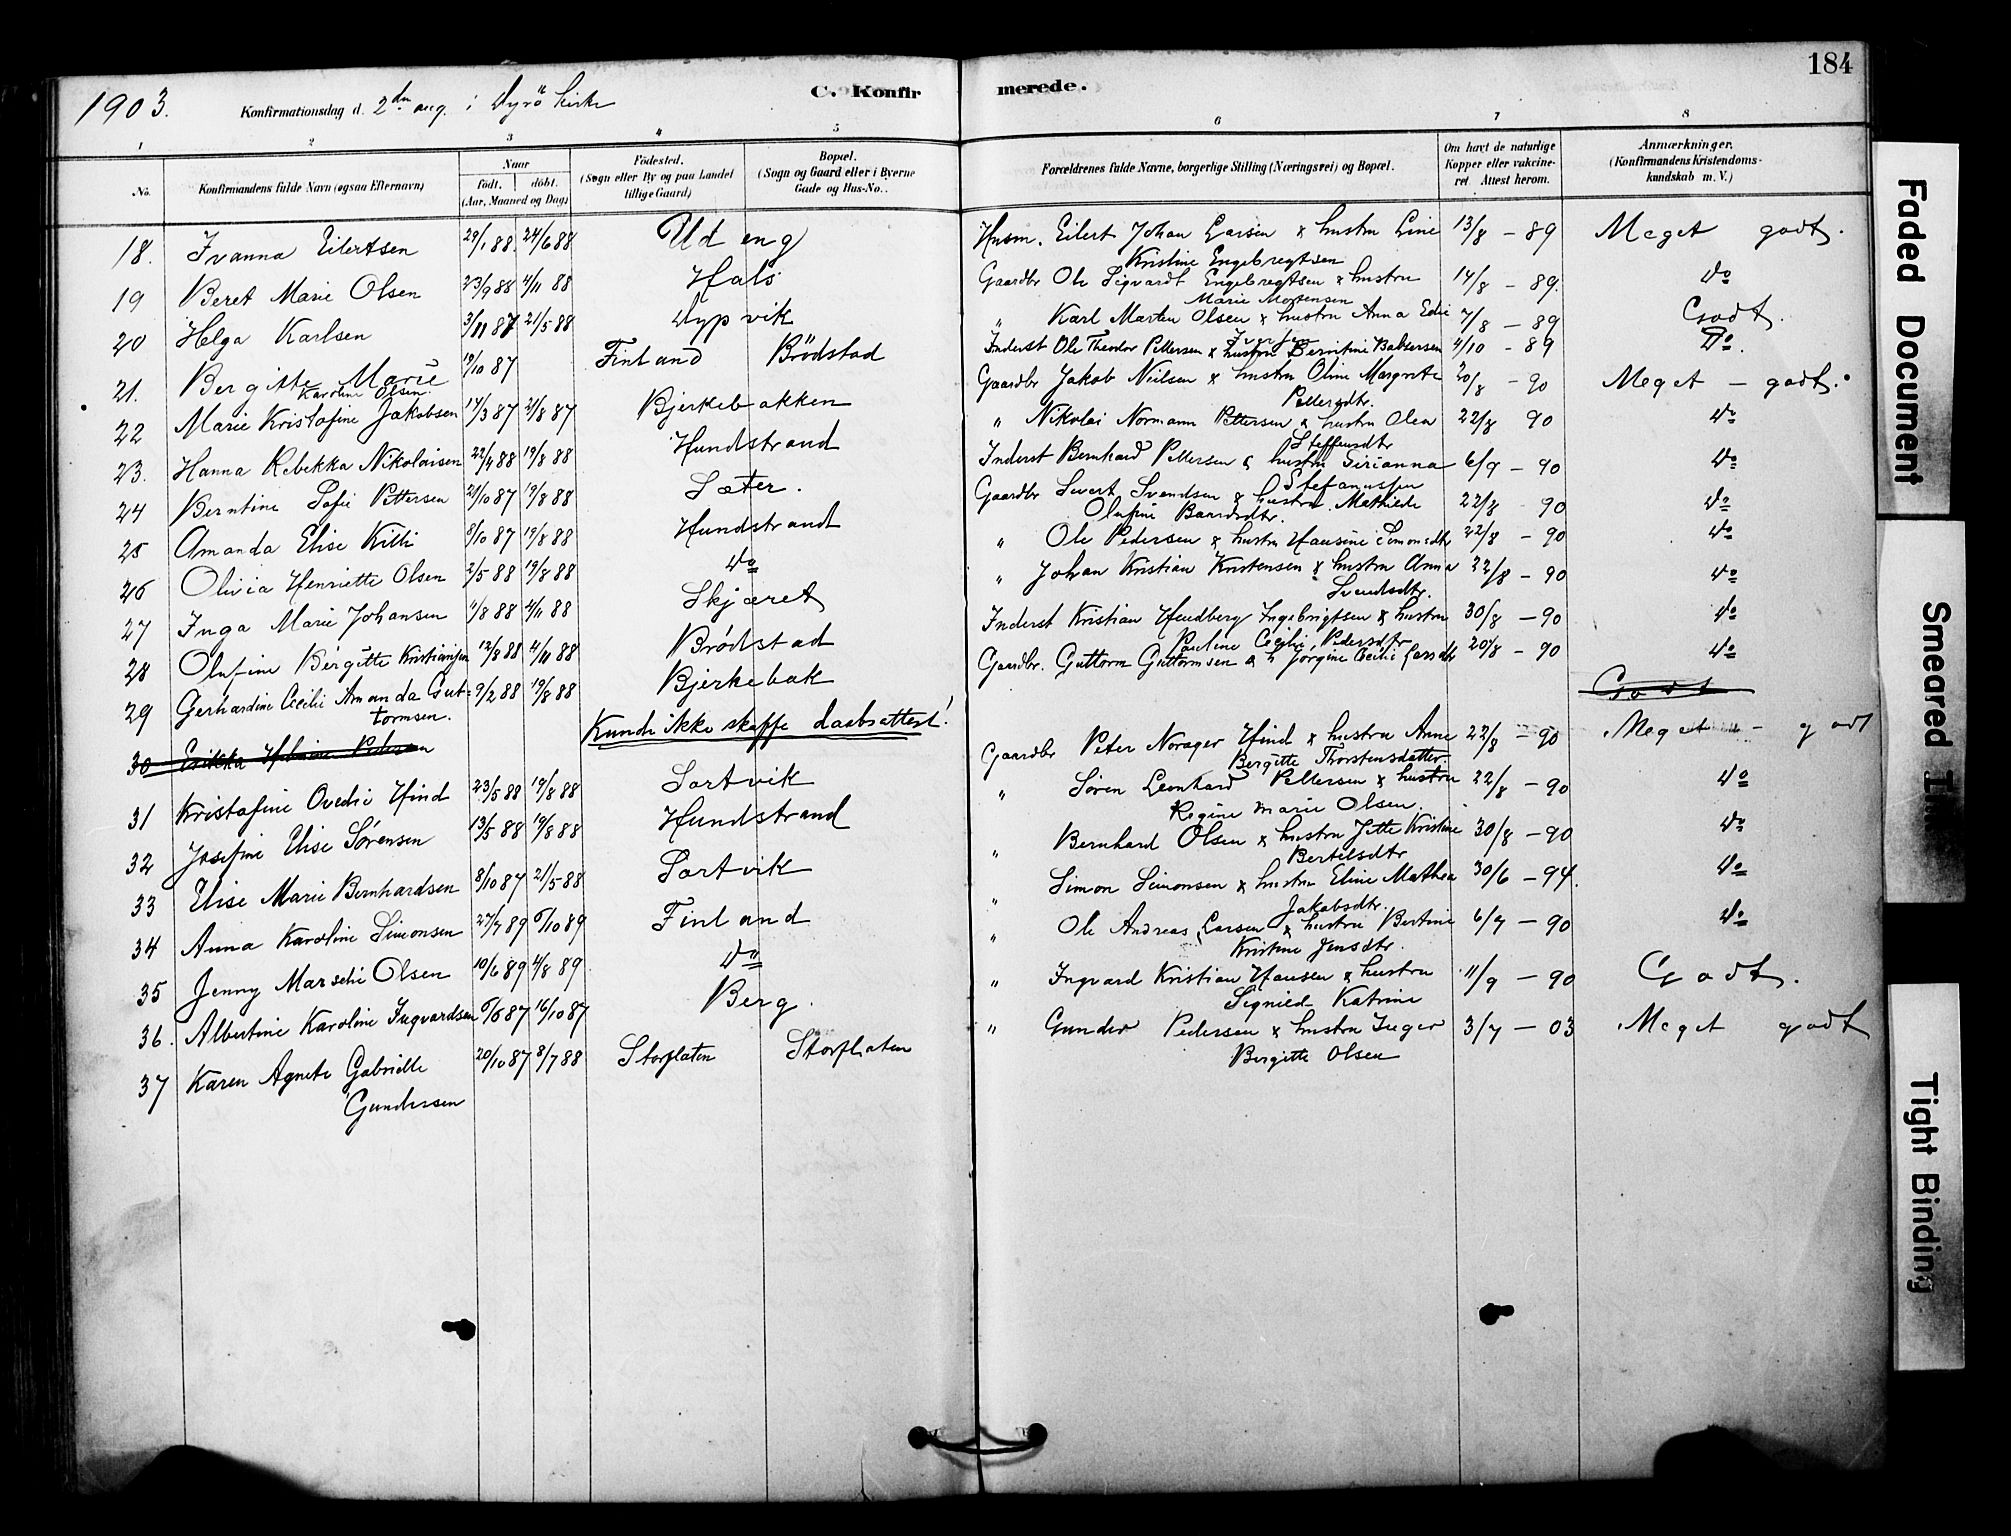 184
1903. Konfirmationsdag d. 2den aug. i Dyrö Kirke
C. Konfirmerede.
1 2 3 4 5 6 7 8
No. Konfirmandens fulde Navn (ogsaa Efternavn) Naar födt. döbt. (Aar, Maaned og Dag) Födested. (Sogn eller By og paa Landet tillige Gaard) Bopæl. (Sogn og Gaard eller i Byerne Gade og Hus-No.) Forældrenes fulde Navne, borgerlige Stilling (Næringsvei) og Bopæl. Om havt de naturlige Kopper eller vakcineret. Attest herom. Anmærkninger. (Konfirmandens Kristendomskundskab m. V.)
18. Ivanna Eilertsen 29/1 88. 24/6 88 Ud eng Husm. Eilert Johan Larsen & hustru Line Kristine Engebregtsen 13/8 - 89 Meget godt.
19 Beret Marie Olsen 23/9 88 4/11 88 Hals Gaardbr Ole Sigvardt Engebregtsen & hustru Marie Mortensen 14/8 - 89. do
20 Helga Karlsen 3/11 87 21/5 88 Dyp vik " Karl Marten Olsen & hustru Anna Edie Iversen 7/8 - 89 Godt.
21. Bergitte Marie Karoline Olsen 19/10 87 Finland Brödstad Inderst Ole Theodor Pettersen & hustru Berntine Baltsersen 4/10 - 89 Do.
22 Marie Kristofine Jakobsen 14/3 87 21/8 87 Bjerkebakken Gaardbr Jakob Nielsen & hustru Oline Margrete Pettersdtr. 20/8 - 90 Meget - godt.
23. Hanna Rebekka Nikolaisen 22/4 88 19/8 88 Hundstrand " Nikolai Normann Pettersen & hustru Olea Steffensdtr 22/8 90 do
24 Berntine Sofie Pettersen 21/10 87 19/8 88 Sæter. Inderst Bernhard Pettersen & hustru Sirianna Stefanussen 6/9 - 90 do
25 Amanda Elise Killi 8/10 87 19/8 88 Hundstrand Gaardbr Sivert Svendsen & hustru Mathilde Olufine Baardsdtr. 22/8 90 do
26 Olivia Henriette Olsen 2/5 88 19/8 88 do " Ole Pedersen & hustru Hansine Simonsdtr 22/8 - 90 do
27 Inga Marie Johansen 11/8 88 4/11 88 Skjæret " Johan Kristian Kristensen & hustru Anna Svendsdtr. 22/8 - 90 do
28 Olufine Bergitte Kristiansen 12/8 88 4/11 88 Brödstad Inderst Kristian Hendberg Ingebrigtsen & hustru Pauline Cecilie Pedersdtr 30/8 - 90 do
29 Gerhardine Cecilie Amanda Guttormsen. 9/2 88 19/8 88 Bjerkebak Gaardbr. Guttorm Guttormsen & h Jorgine Cecilie Larsdtr 20/8 - 90 do
30 Pedersen Kunde ikke skaffe daabsattest! Godt
31 Kristofine Ovedie Hind 23/5 88 19/8 88 Sortvik Gaardbr Peter Norager Hind & hustru Anne Bergitte Thorstensdatter. 22/8 - 90 Meget - godt
32 Josefine Elise Sørensen 13/5 88 19/8 88 Hundstrand " Søren Leonhard Pettersen & hustru Regine Marie Olsen. 22/8 - 90 do
33 Elise Marie Bernhardsen 8/10 87 21/5 88 Sortvik " Bernhard Olsen & hustru Jette Kristine Bertelsdtr 30/8 - 90 do
34 Anna Karoline Simonsen 27/7 89 6/10 89 Finland " Simon Simonsen & hustru Eline Mathea Jakobsdtr. 30/6 - 94. do
35 Jenny Marselie Olsen 10/6 89 4/8 89 do " Ole Andreas Larsen & hustru Bertine Kristine Jensdtr. 6/7 - 90 do
36. Albertine Karoline Ingvardsen 6/6 87 16/10 87 Berg " Ingvard Kristian Hansen & hustru Signied Katrine 11/9 - 90 Godt.
37 Karen Agnete Gabrielle Gundersen 20/10 87 8/7 88 Storflaten Storflaten " Gunder Pedersen & hustru Inger Bergitte Olsen 3/7 - 03 Meget godt
Faded Document
Smeared Ink
Tight Binding